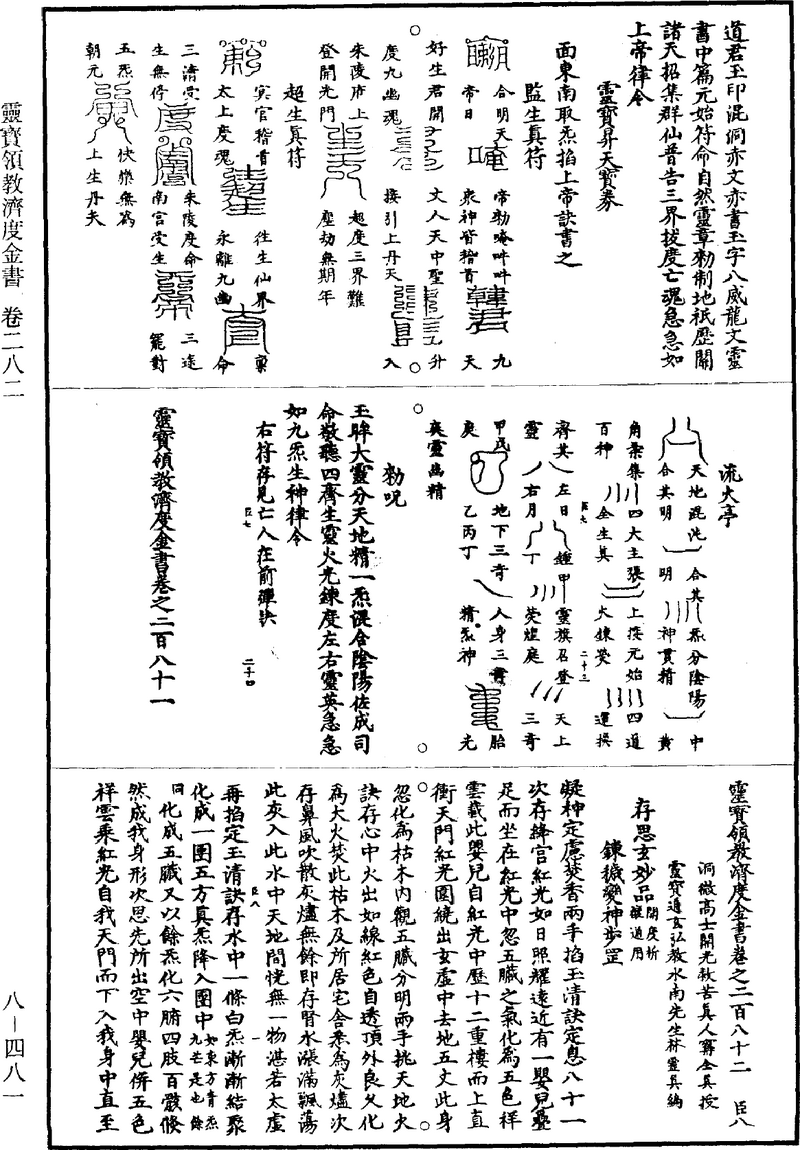 道君玉印混洞赤文赤書玉字八威龍文靈
書中篇元始符命自然靈章勑制地祇歷關
諸天招集群仙普告三界拔度亡魂急急如
上帝律令
靈寶昇天寶券
面東南取炁掐上帝訣書之
監生真符
合明天 帝勑唵吽吽 九
帝日 衆神皆稽首 天
好生君開 文人天中聖 升
度九幽魂 接引上丹天 入
朱陵府上 超度三界難
登開光門 塵劫無期年
超生真符
冥官稽首 往生仙界 稟
太上度魂 永離九幽 命
三清受 朱陵度命 三途
生無停 南官受生 罷對
五炁 快樂無爲
朝元 上生丹天
流火亭
天地混沌 合其 炁分陰陽 中
合其明 明 神貫精 黄
角柔集 四大主張 上接元始 四道
百神 全生其 火鍊熒 運操
齊其 左日 鍾甲 靈旗召登 天上
靈 右月 丁 熒煌庭 三奇
甲戊 地下三奇 人身三 胎
庚 乙丙丁 精炁神 光
爽靈幽精
勑呪
玉眸大靈分天地精一炁混合陰陽佐成司
命敬聽四齊生靈火光鍊度左右靈英急急
如九炁生神律令
右符存見亡人在前彈訣
靈寶領教濟度金書卷之二百八十一
靈寶領教濟度金書卷之二百八十二 臣八
洞微高士開光救苦真人寗全真授
靈寶通玄弘教水南先生林靈真編
存思玄妙品 開度祈禳通用
鍊穢變神步罡
凝神定慮焚香兩手掐玉清訣定息八十一
次存絳宫紅光如日照耀遠近有一嬰兒疊
足而坐在紅光中忽五臟之氣化爲五色祥
雲載此嬰兒自紅光中歷十二重樓而上直
衝天門紅光圍繞出玄虛中去地五丈此身
忽化爲枯木内觀五臟分明兩手挑天地火
訣存心中火出如線紅色自透頂外良久化
爲大火焚此枯木及所居宅舍悉爲灰燼次
存鼻風吹散灰燼無餘即存腎水漲滿飄蕩
此灰入此水中天地間恍無一物湛若太虛
再掐定玉清訣存水中一條白炁漸漸結聚
化成一團五方真炁降入團中 如東方青炁九芒是也餘
同 化成五臟又以餘炁化六腑四肢百骸倏
然成我身形次思先所出空中嬰兒併五色
祥雲乘紅光自我天門而下入我身中直至
靈寶領教濟度金書 卷二八二
八－四八一